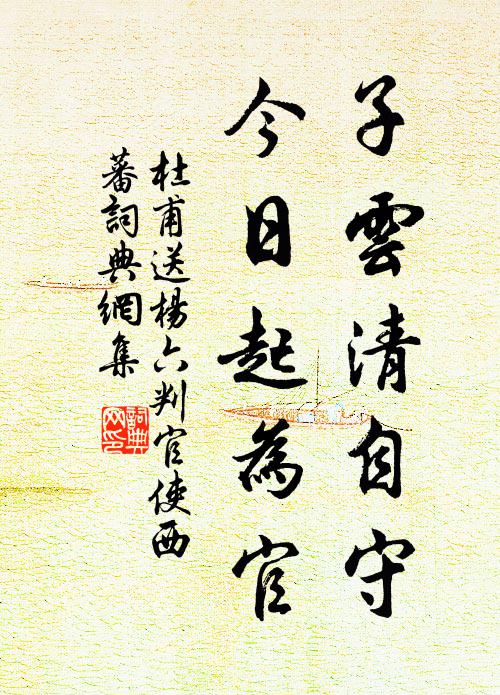 子雲清自守
今日起為官
杜甫送楊六判官使西
蕃詞典網集
詞典网印